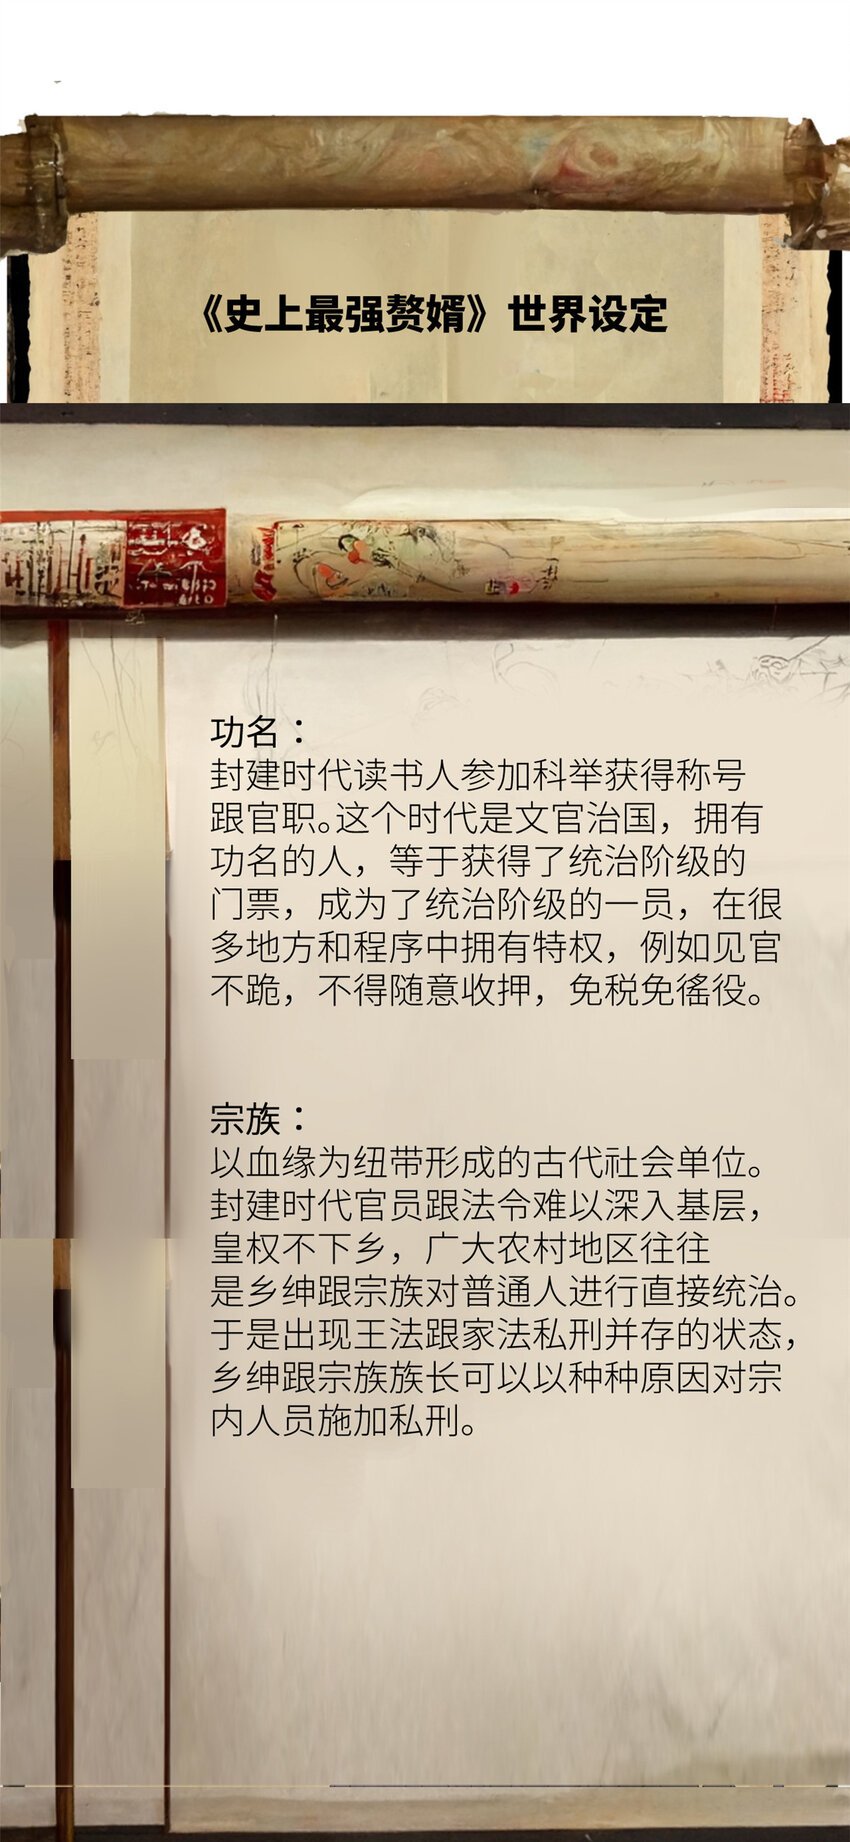 《史上最强赘婿》世界设定
功名：
封建时代读书人参加科举获得称号
跟官职。这个时代是文官治国，拥有
功名的人，等于获得了统治阶级的
门票，成为了统治阶级的一员，在很
多地方和程序中拥有特权，例如见官
不跪，不得随意收押，免税免徭役。
宗族：
以血缘为纽带形成的古代社会单位。
封建时代官员跟法令难以深入基层，
皇权不下乡，广大农村地区往往
是乡绅跟宗族对普通人进行直接统治。
于是出现王法跟家法私刑并存的状态，
乡绅跟宗族族长可以以种种原因对宗
内人员施加私刑。